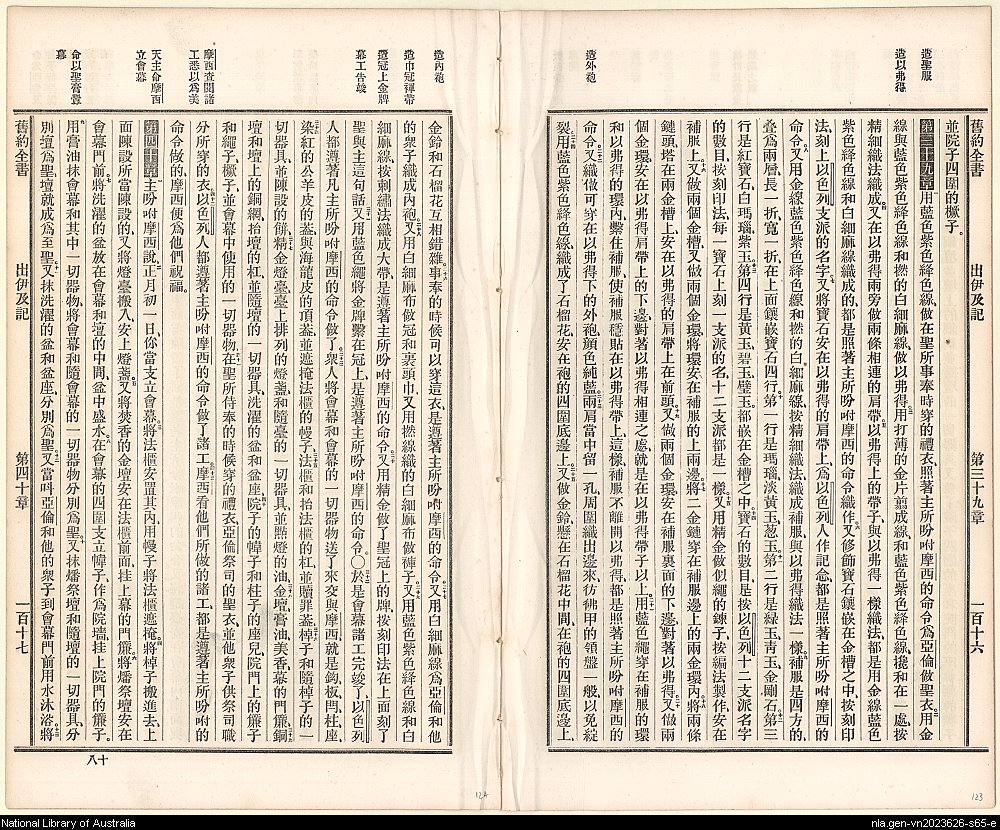 造聖服
造以弗得
造外袍
舊約全書 出伊及記 第三十九章 一百十六
並院子四圍的橛子。
第三十九章 用藍色紫色絳色線、做在聖所事奉時穿的禮衣、照著主所吩咐摩西的命令、爲亞倫做聖衣、用金
線與藍色紫色絳色線、和撚的白細麻線、做以弗得、用打薄的金片剪成線、和藍色紫色絳色線、攙和在一處、按
精細織法織成、又在以弗得兩旁做兩條相連的肩帶、以弗得上的帶子、與以弗得一樣織法、都是用金線藍色
紫色絳色線和白細麻線織成的、都是照著主所吩咐摩西的命令織作、又修飾寶石鑲嵌在金槽之中、按刻印
法、刻上以色列支派的名字、又將寶石安在以弗得的肩帶上、爲以色列人作記念、都是照著主所吩咐摩西的
命令、又用金線藍色紫色絳色線、和撚的白細麻線、按精細織法織成補服、與以弗得織法一樣、補服是四方的、
疊爲兩層、長一折、寬一折、在上面鑲嵌寶石四行、第一行是瑪瑙、淡黃玉、葱玉、第二行是綠玉、青玉、金剛石、第三
行是紅寶石、白瑪瑙、紫玉、第四行是黃玉、碧玉、璧玉、都嵌在金槽之中、寶石的數目、是按以色列十二支派名字
的數目、按刻印法、每一寶石上刻一支派的名、十二支派都是一樣、又用精金做似繩的鍊子、按編法製作、安在
補服上、又做兩個金槽、又做兩個金環、將環安在補服的上兩邊、將二金鏈穿在補服邊上的兩金環內、將兩條
鏈頭搭在兩金槽上、安在以弗得的肩帶上、在前頭、又做兩個金環、安在補服裏面的下邊、對著以弗得、又做兩
個金環、安在以弗得肩帶上的下邊、對著以弗得相連之處、就是在以弗得帶子以上、用藍色繩穿在補服的環
和以弗得的環內、繫住補服、使補服穩貼在以弗得帶上、這樣、補服不離開以弗得、都是照著主所吩咐摩西的
命令、又織做可穿在以弗得下的外袍、顏色純藍、兩肩當中留一孔、周圍織出邊來、彷彿甲的領盤一般、以免綻
裂、用藍色紫色絳色線、織成了石榴花、安在袍的四圍底邊上、又做金鈴、懸在石榴花中間、在袍的四圍底邊上、
造內袍
造巾冠褌帶
造冠上金牌
幕工告竣
摩西查閱諸工悉以爲美
天主命摩西立會幕
命以聖膏釁幕
金鈴和石榴花互相錯雜、事奉的時候可以穿這衣、是遵著主所吩咐摩西的命令、又用白細麻線爲亞倫和他
的衆子織成內袍、又用白細麻布做冠和裹頭巾、又用撚線織的白細麻布做褲子、又用藍色紫色絳色線和白
細麻線、按刺繡法織成大帶、是遵著主所吩咐摩西的命令、又用精金做了聖冠上的牌、按刻印法在上面刻了
聖與主這句話、又用藍色繩將金牌繫在冠上、是遵著主所吩咐摩西的命令。〇於是會幕諸工完竣了、以色列
人都遵著凡主所吩咐摩西的命令做了、衆人將會幕和會幕的一切器物送了來、交與摩西、就是鈎、板、閂、柱、座、
染紅的公羊皮的蓋與海龍皮的頂蓋、並遮掩法櫃的幔子、法櫃和抬法櫃的杠、並贖罪蓋、棹子和隨棹子的一
切器具、並陳設的餅、精金燈臺、臺上排列的燈盞、和隨臺的一切器具、並燃燈的油、金壇、膏油、美香、幕的門簾、銅
壇和壇上的銅網、抬壇的杠、並隨壇的一切器具、洗濯的盆和盆座、院子的幃子和柱子的座兒、院門上的簾子
和繩子、橛子、並會幕中使用的一切器物、在聖所侍奉的時候穿的禮衣、亞倫祭司的聖衣、並他衆子供祭司職
分所穿的衣、以色列人都遵著主吩咐摩西的命令做了諸工、摩西看他們所做的諸工、都是遵著主所吩咐的
命令做的、摩西便爲他們祝福。
第四十章 主吩咐摩西說、正月初一日、你當支立會幕、將法櫃安置其內、用幔子將法櫃遮掩、將棹子搬進去、上
面陳設所當陳設的、又將燈臺搬入、安上燈盞、又將焚香的金壇安在法櫃前面、挂上幕的門簾、將燔祭壇安在
會幕門前、將洗濯的盆放在會幕和壇的中間、盆中盛水、在會幕的四圍支立幃子、作爲院墻、挂上院門的簾子、
用膏油抹會幕和其中一切器物、將會幕和隨會幕的一切器物分別爲聖、又抹燔祭壇和隨壇的一切器具、分
別壇爲聖、壇就成爲至聖、又抹洗濯的盆和盆座、分別爲聖、又當呌亞倫和他的衆子到會幕門前用水沐浴、將
舊約全書 出伊及記 第四十章 一百十七
十八
124
123
National Library of Australia
nla.gen-vn2023626-s65-e